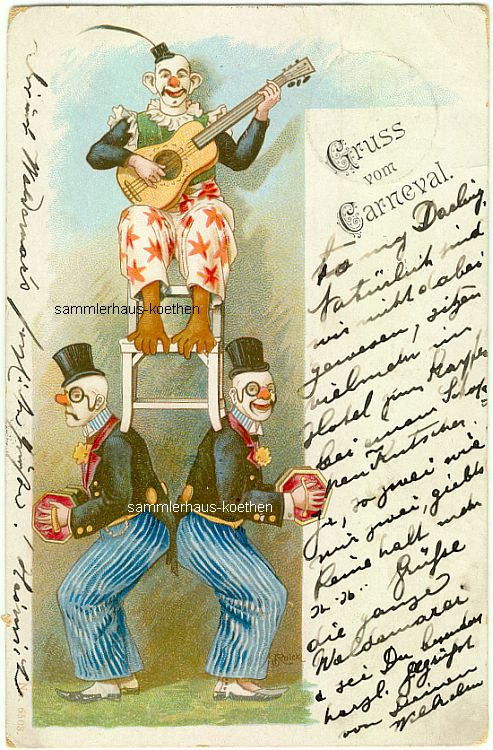 Gruss
vom
Carneval.
to my Darling,
Natürlich sind
wir nicht dabei
gewesen, sitzen
vielmehr im
Hotel zum
bei einem
pen Kutscher.
Ja, so zwei wie
wir zwei, giebts
keine halt mehr
Grüße
die ganze
Waldemarei
& sei Du besonders
herzl. gegrüßt
von Deinem
Wilhelm
herzliche Grüße!
Heinrich
sammlerhaus-koethen
sammlerhaus-koethen
6508.